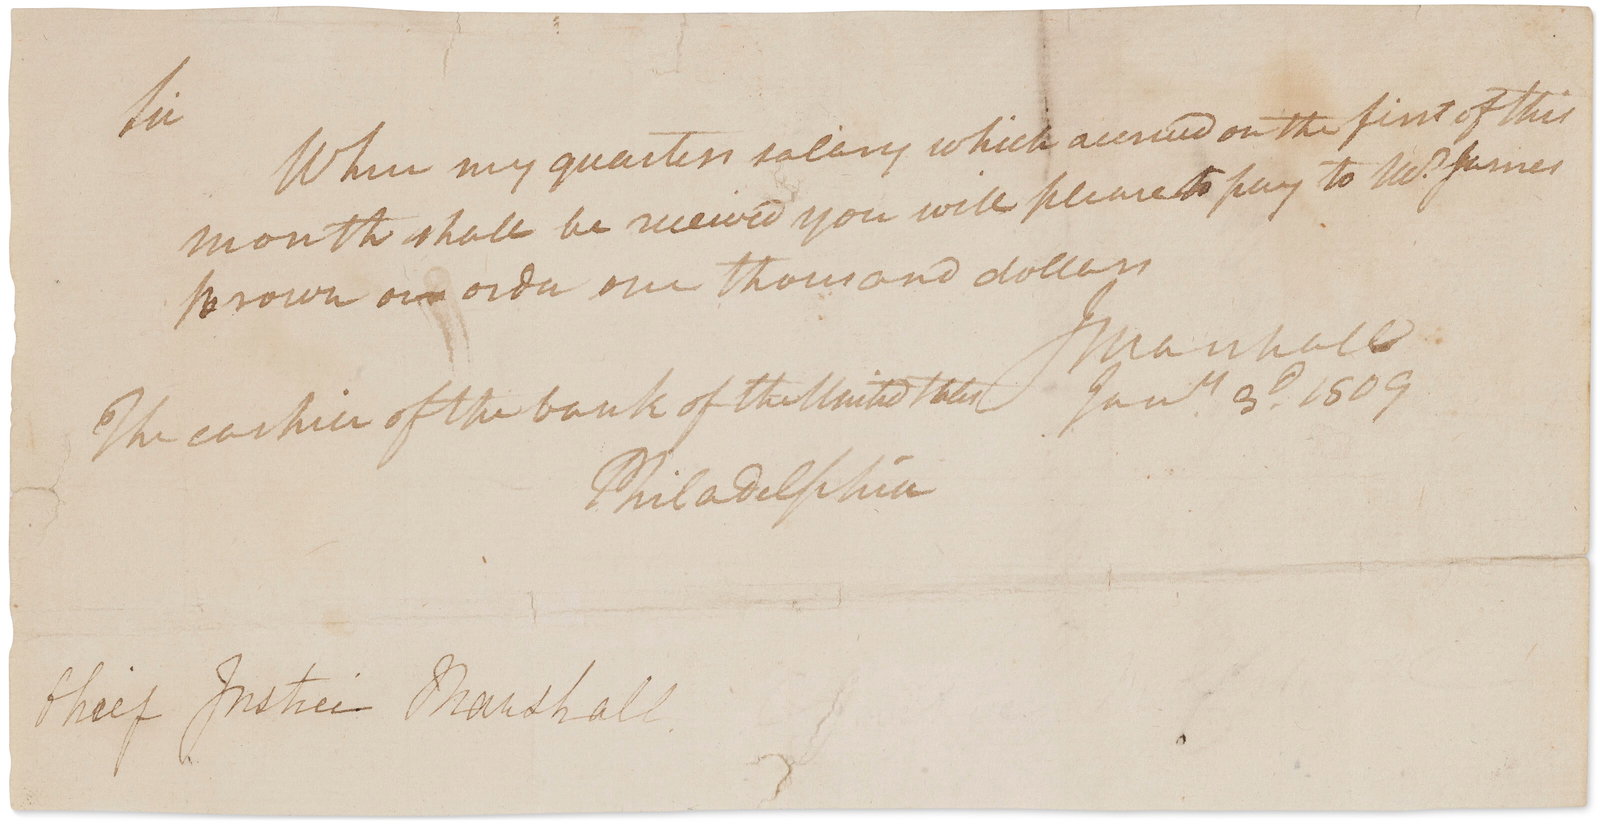 Sir
When my quarters salary which accrued on the first of this
month shall be received you will please to pay to Mr. James
Brown or order one thousand dollars
J Marshall
The cashier of the bank of the United States
Jany. 3d. 1809
Philadelphia
Chief Justice Marshall